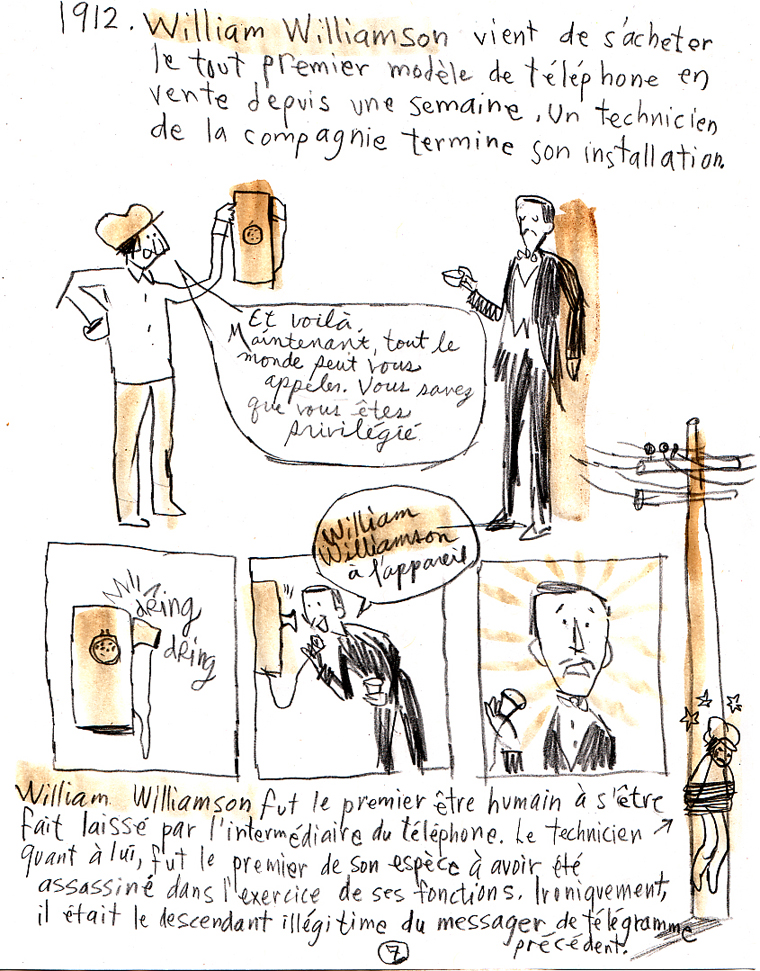 1912. William Williamson vient de s'acheter
le tout premier modèle de téléphone en
vente depuis une semaine. Un technicien
de la compagnie termine son installation.
Et voilà,
Maintenant, tout le
monde peut vous
appeler. Vous savez
que vous êtes
privilégié
William
Williamson
à l'appareil
dring
dring
William Williamson fut le premier être humain à s'être
fait laissé par l'intermédiaire du téléphone. Le technicien ↗
quant à lui, fut le premier de son espèce à avoir été
assassiné dans l'exercice de ses fonctions. Ironiquement,
il était le descendant illégitime du messager de télégramme
précédent.
7